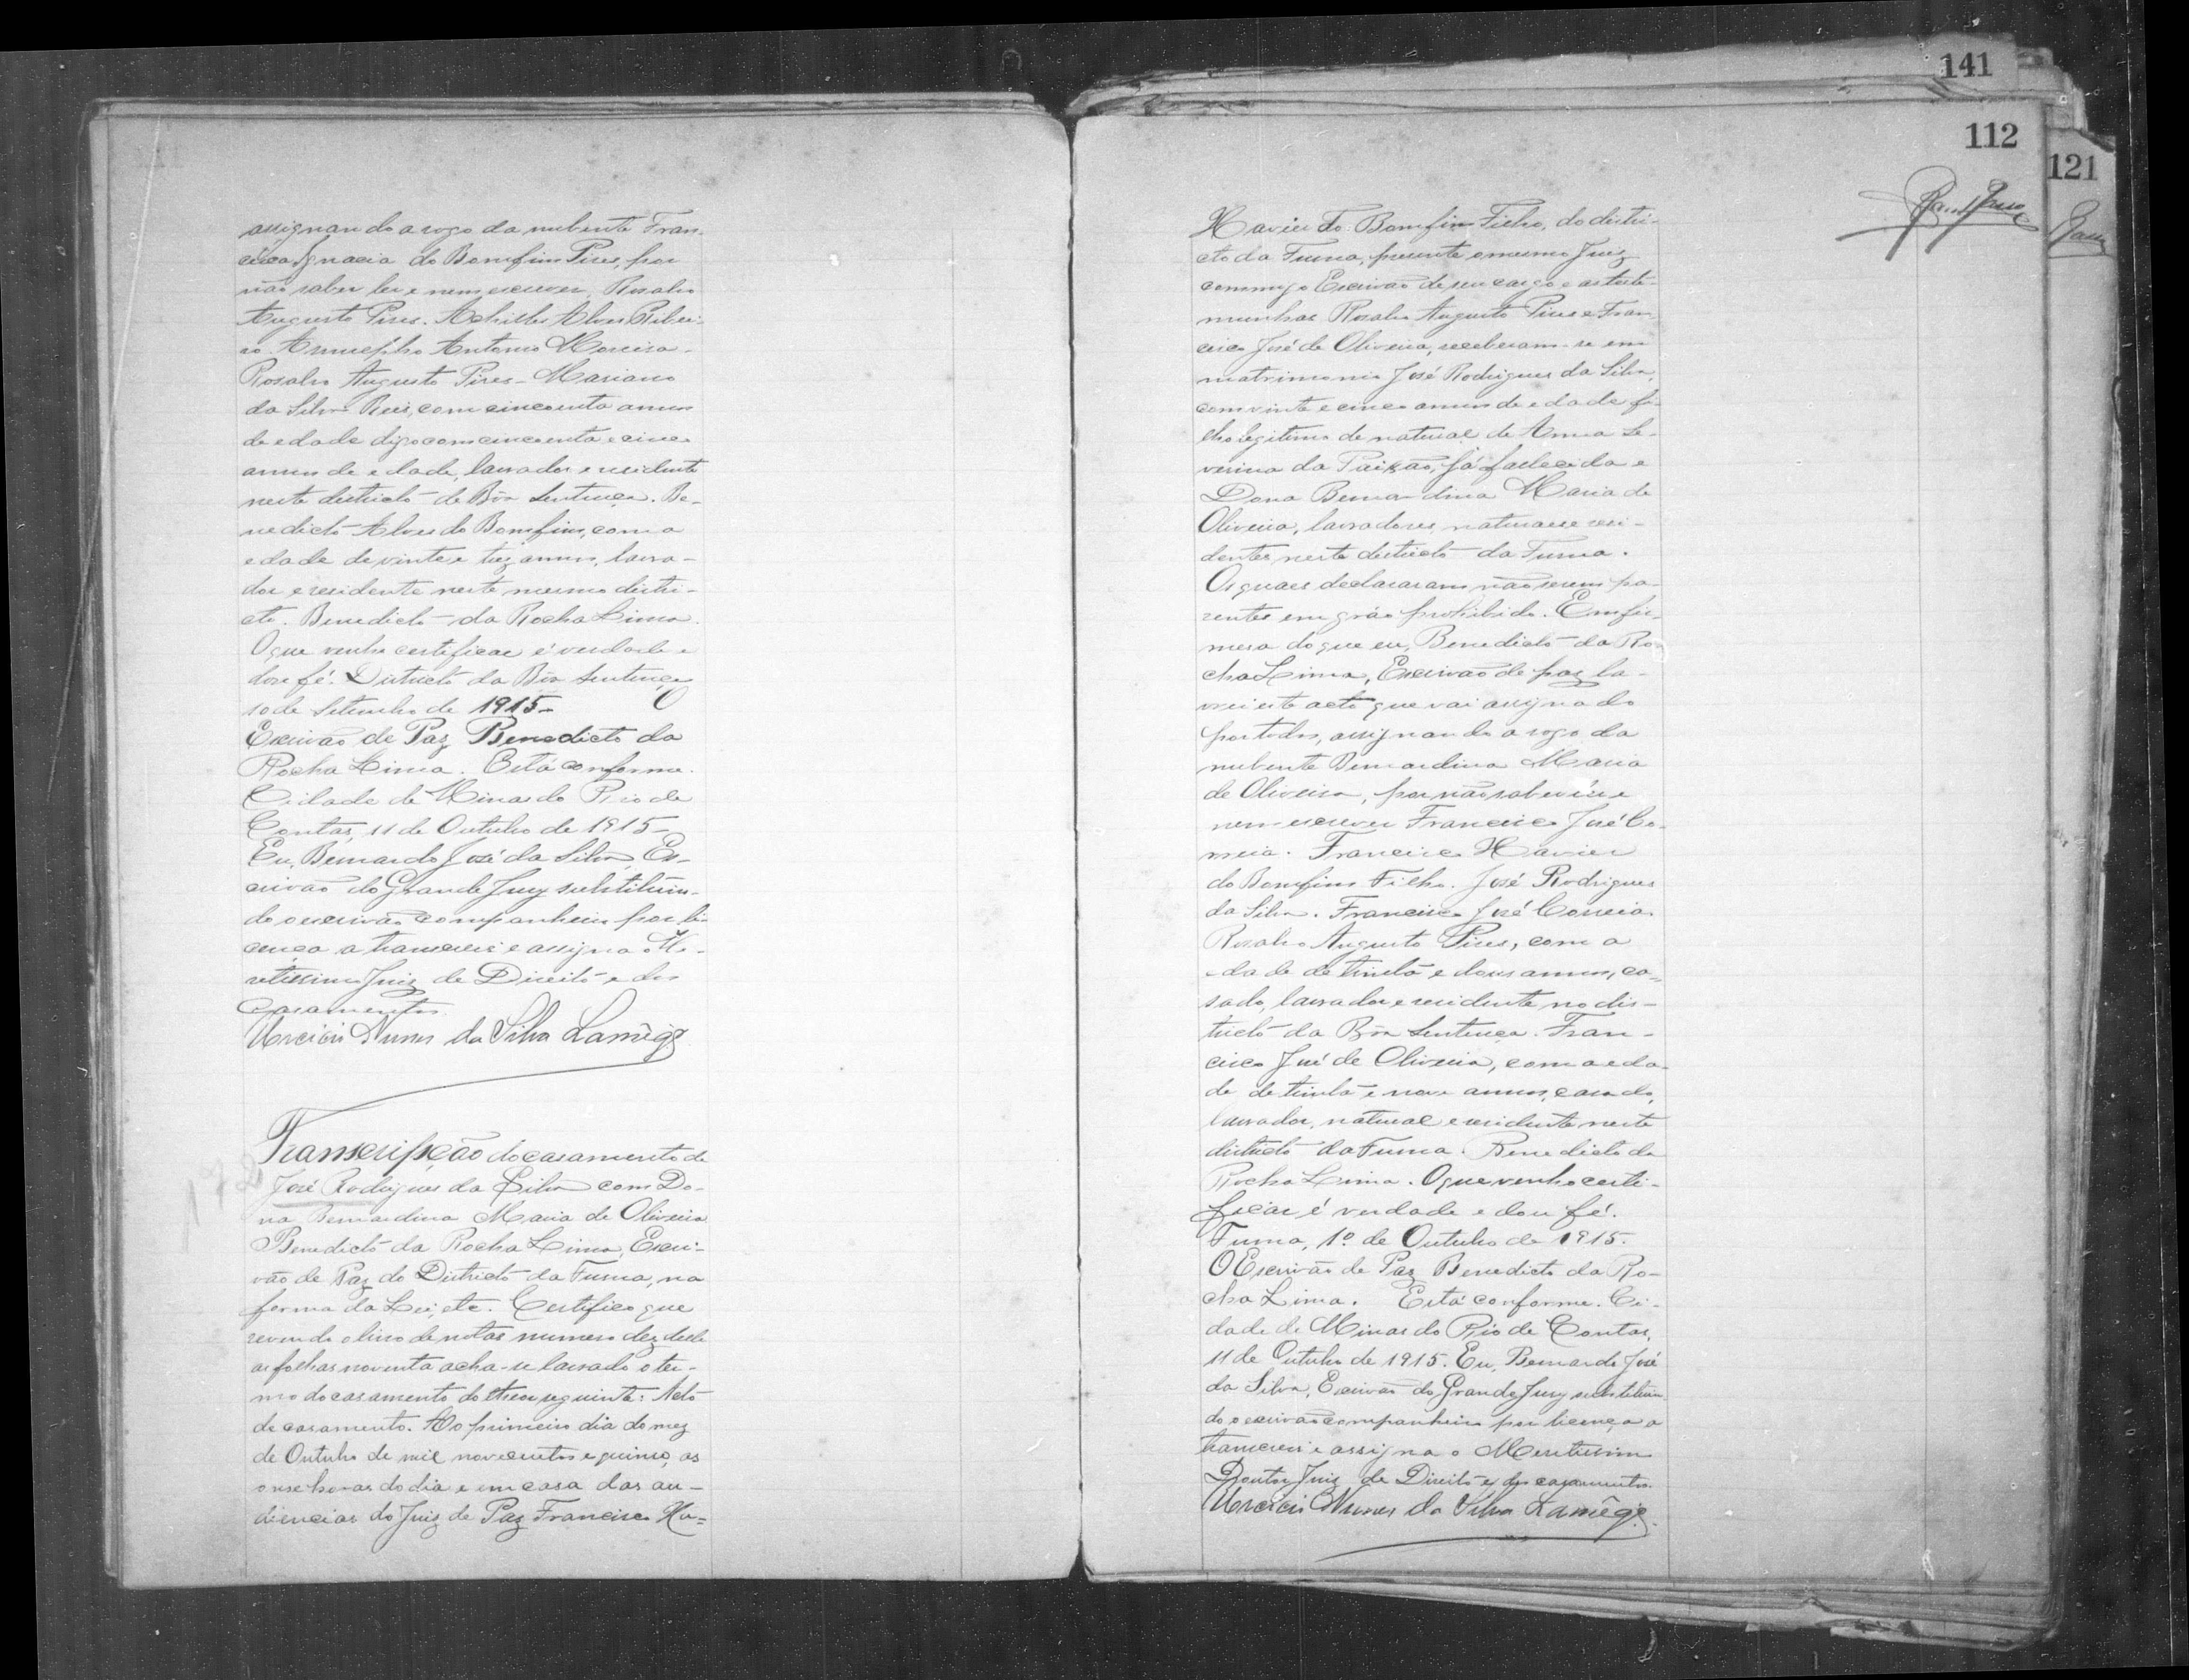 assignando a rogo da nubente Fran-
cisca Ignacia do Bomfim Pires, por
não saber ler e nem escrever, Rosalvo
Augusto Pires. Achilles Alves Ribei-
ro Antonio Moreira -
Rosalvo Augusto Pires - Mariano
da Silva Reis, com cincoenta annos
de edade digo com cincoenta e cinco
annos de edade, lavrador e residente
neste districto de Bôa Sentença. Be-
nedicto Alves do Bomfim, com a
edade de vinte e trez annos, lavra-
dor e residente neste mesmo distri-
cto. Benedicto da Rocha Lima.
O que venho certificar é verdade e
dou fé. Districto da Bôa Sentença
10 de Setembro de 1915 -
Escrivão de Paz Benedicto da
Rocha Lima. Está conforme.
Cidade de Minas do Rio de
Contas, 11 de Outubro de 1915 -
Eu, Bernardo José da Silva, Es-
crivão do Grande Jury substituin-
do o escrivão companheiro por li-
cença a transcrevi e assigna o Me-
retissimo Juiz de Direito e dos
Casamentos.
Nunes da Silva Lamêgo
Transcripção do casamento de
José Rodrigues da Silva com Do-
na Bernardina Maria de Oliveira
Benedicto da Rocha Lima, Escri-
vão de Paz do Districto da Furna, na
forma da Lei, etc. Certifico que
revendo o livro de notas numero dez deste
as folhas noventa acha-se lavrado o ter-
mo do casamento do theor seguinte: Acto
de casamento. Ao primeiro dia do mez
de Outubro de mil novecentos e quinse, as
onse horas do dia e em casa das au-
diencias do Juiz de Paz Francisco Xa-
141
112
121
Xavier do Bomfim Filho, do distri-
cto da Furna, presente o mesmo Juiz
commigo Escrivão de seu cargo e as teste-
munhas Rosalvo Augusto Pires e Fran-
cisco José de Oliveira, receberam-se em
matrimonio José Rodrigues da Silva,
com vinte e cinco annos de edade fi-
lho legitimo de natural de Anna Se-
verina da Paixão, já fallecida e
Dona Bernardina Maria de
Oliveira, lavradores, naturaes e resi-
dentes neste districto da Furna.
Os quaes declararam não serem pa-
rentes em gráo prohibido. Em fir-
mesa do que eu, Benedicto da Ro-
cha Lima, Escrivão de paz la-
vrei este acto que vai assignado
por todos, assignando a rogo da
nubente Bernardina Maria
de Oliveira, por não saber ler e
nem escrever Francisco José Co-
rreia. Francisco Xavier
do Bomfim Filho. José Rodrigues
da Silva. Francisco José Correia.
Rosalvo Augusto Pires, com a
edade de trinta e dous annos, ca-
sado, lavrador e residente no dis-
tricto da Bôa Sentença. Fran-
cisco José de Oliveira, com a eda-
de de trinta e nove annos, casado,
lavrador, natural e residente neste
districto da Furna. Benedicto da
Rocha Lima. O que venho certi-
ficar é verdade e dou fé.
Furna, 1º de Outubro de 1915.
O Escrivão de Paz Benedicto da Ro-
cha Lima. Está conforme. Ci-
dade de Minas do Rio de Contas,
11 de Outubro de 1915. Eu, Bernardo José
da Silva, Escrivão do Grande Jury substituin-
do o escrivão companheiro por licença a
transcrevi e assigna o Meretissimo
Doutor Juiz de Direito e dos casamentos.
Nunes da Silva Lamêgo